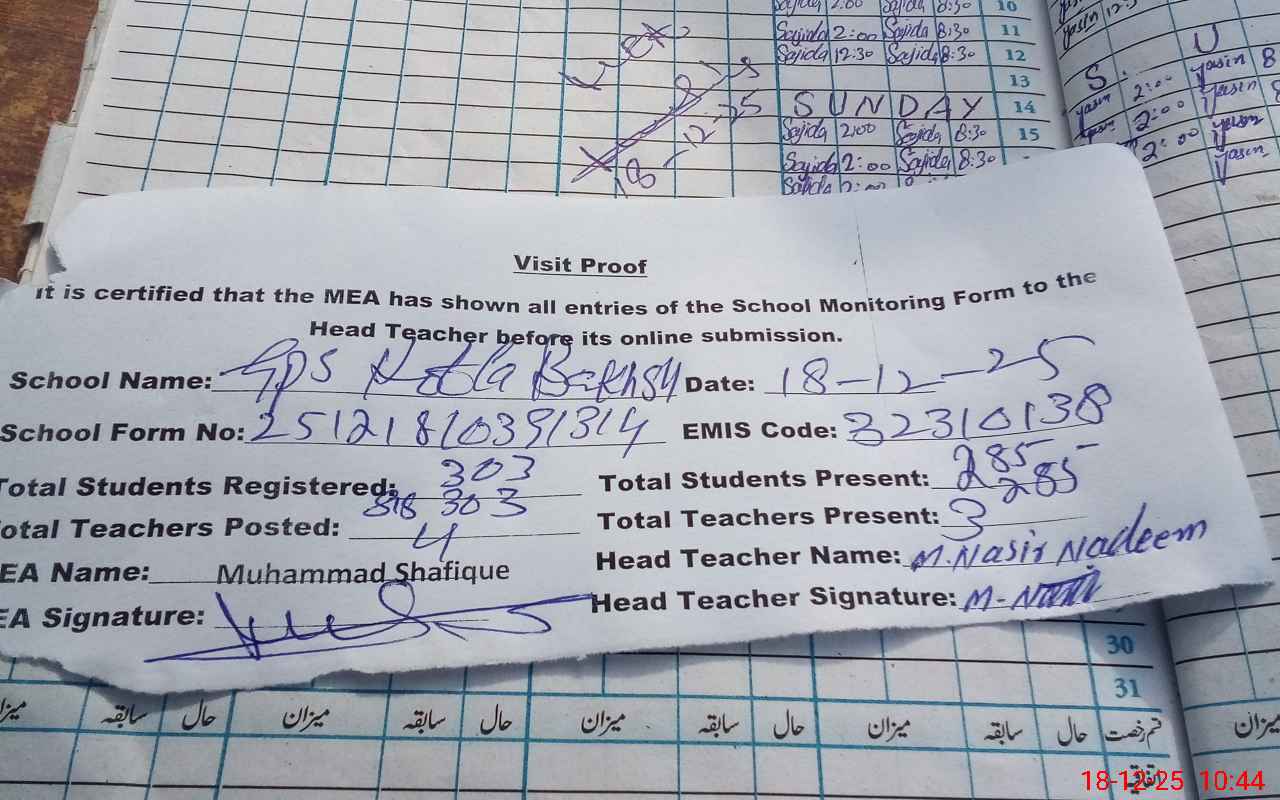 Sajida 2:00 Sajida 8:30 10
Sajida 2:00 Sajida 8:30 11
Sajida 12:30 Sajida 8:30 12
13
SUNDAY 14
Sajida 2:00 Sajida 8:30 15
Sajida 2:00 Sajida 8:30
Sajida 2:00
18-12-25
yasin 12:3
U
S.
yasin 2:00 yasin 8
yasin 2:00 yasin 8
2:00 yasin
yasin
Visit Proof
It is certified that the MEA has shown all entries of the School Monitoring Form to the
Head Teacher before its online submission.
School Name: Gps Kotla Bakhsh Date: 18-12-25
School Form No: 25121810391314 EMIS Code: 32310138
Total Students Registered: 303 303 Total Students Present: 285 285
Total Teachers Posted: 4 Total Teachers Present: 3
EA Name: Muhammad Shafique Head Teacher Name: M. Nasir Nadeem
EA Signature: Head Teacher Signature: M-Nasir
30
31
میزان سابقہ حال میزان سابقہ حال میزان سابقہ حال میزان سابقہ حال قسم رخصت
میزان
اتفاقیہ
18-12-25 10:44